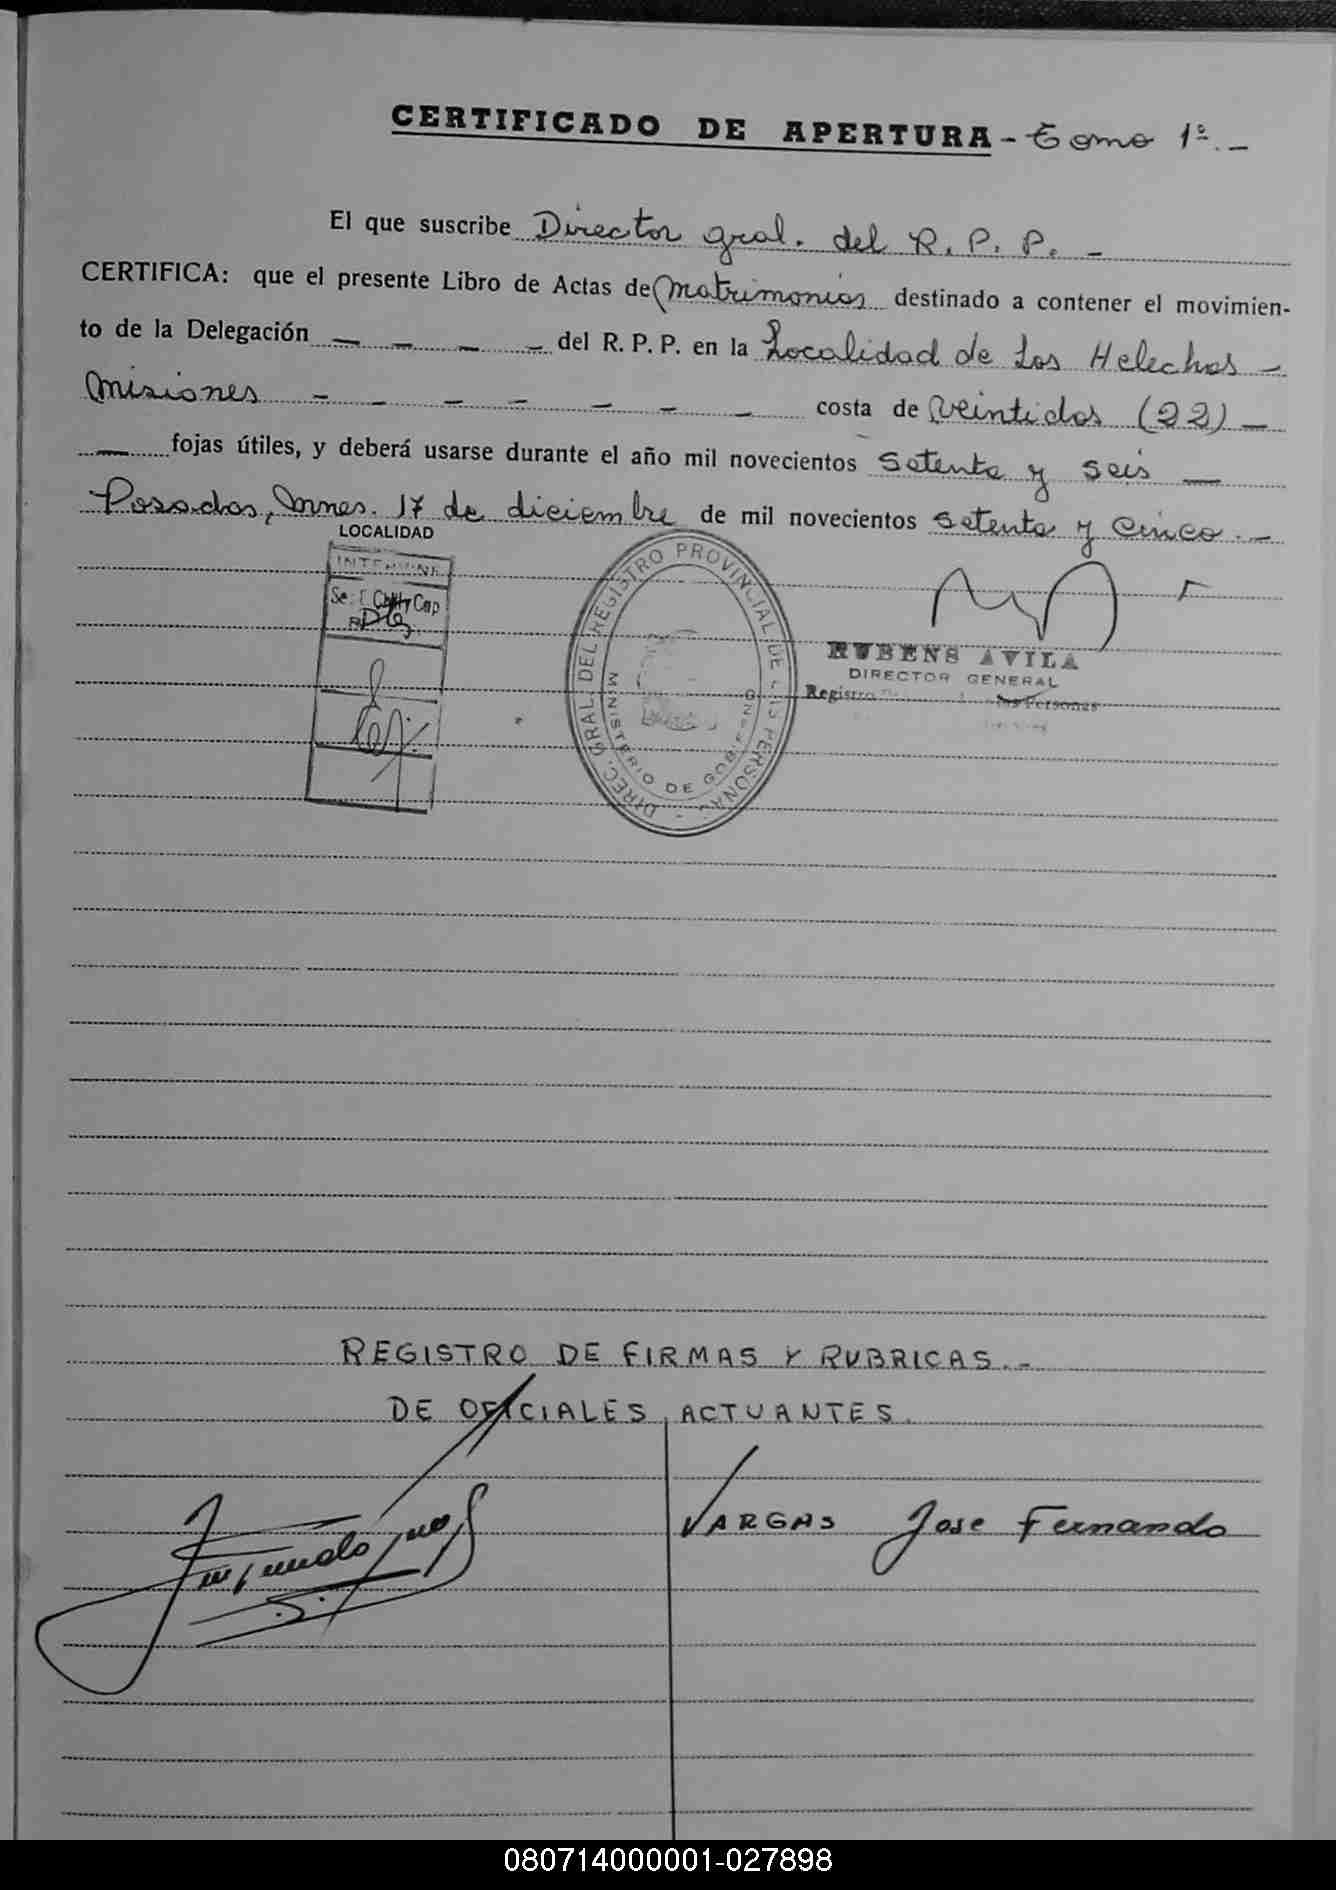 CERTIFICADO DE APERTURA - Tomo 1º. -
El que suscribe Director gral. del R. P. P. -
CERTIFICA: que el presente Libro de Actas de Matrimonios destinado a contener el movimien-
to de la Delegación — — — — del R. P. P. en la Localidad de Los Helechos -
Misiones - - - - - - - costa de Veintidos (22) —
— fojas útiles, y deberá usarse durante el año mil novecientos Setenta y Seis —
Posadas, Mnes. 17 de diciembre de mil novecientos Setenta y Cinco. -
LOCALIDAD
INTERVINE
DIREC. GRAL. DEL REGISTRO PROVINCIAL DE LAS PERSONAS -
MINISTERIO DE GOBIERNO
RUBENS AVILA
DIRECTOR GENERAL
Registro las Personas
REGISTRO DE FIRMAS Y RUBRICAS. -
DE OFICIALES ACTUANTES.
VARGAS Jose Fernando
080714000001-027898